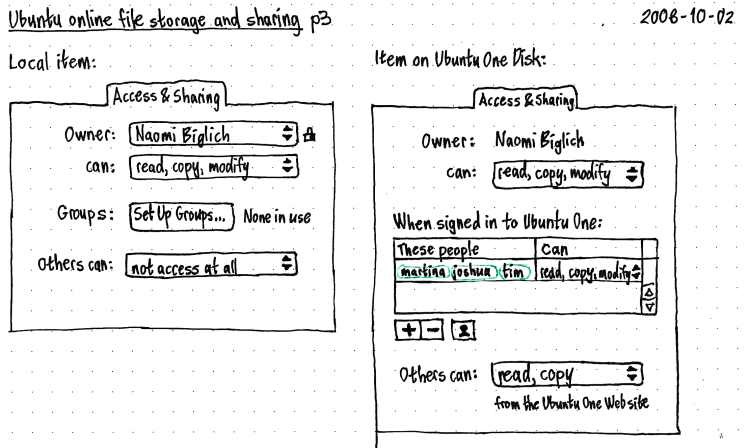 Ubuntu online file storage and sharing p3
2008-10-02
Local item:
Access & Sharing
Owner: Naomi Biglich
can: read, copy, modify
Groups: Set Up Groups... None in use
Others can: not access at all
Item on Ubuntu One Disk:
Access & Sharing
Owner: Naomi Biglich
can: read, copy, modify
When signed in to Ubuntu One:
These people Can
martina joshua tim read, copy, modify
+ −
Others can: read, copy
from the Ubuntu One Web site